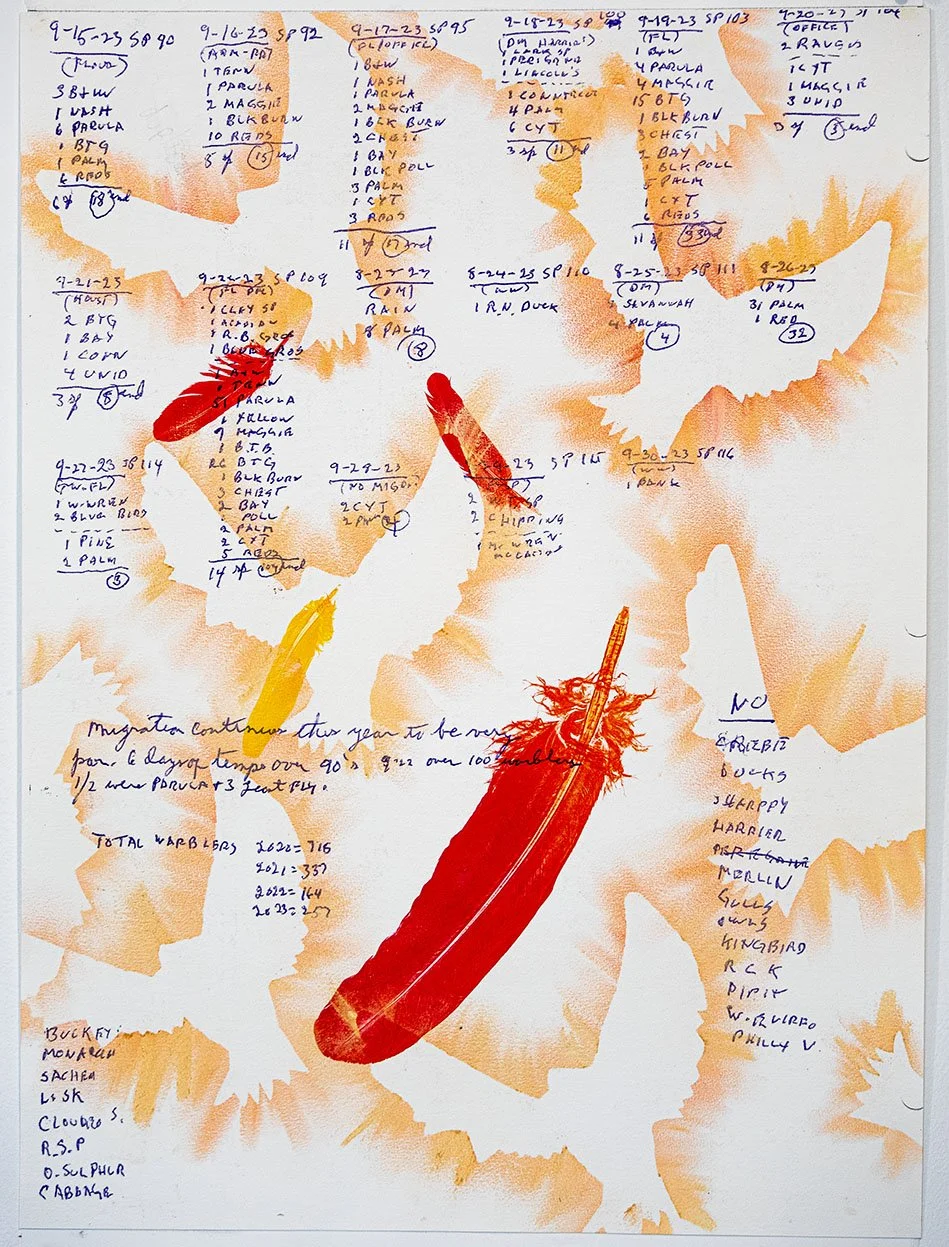 9-15-23 SP 90
3 B+W
1 NASH
6 PARULA
1 BTG
1 PALM
6 REDS
9-16-23 SP 92
1 TENN
1 PARULA
2 MAGGIE
1 BLKBURN
10 REDS
5 sp 15 ind
9-17-23 SP 95
(FL/OFFICE)
1 B+W
1 NASH
1 PARULA
2 MAGGIE
1 BLK BURN
2 CHEST
1 BAY
1 BLK POLL
3 PALM
1 CYT
3 REDS
11 sp 17 ind
9-18-23 SP 100
1 LINCOLN'S
4 PALM
6 CYT
3 sp 11 ind
9-19-23 SP 103
(FL)
1 B+W
4 PARULA
4 MAGGIE
15 BTG
1 BLK BURN
3 CHEST
2 BAY
1 BLK POLL
5 PALM
1 CYT
6 REDS
(OFFICE)
1 CYT
1 MAGGIE
3 UNID
9-21-23
2 BTG
1 BAY
1 CONN
4 UNID
3 sp 8 ind
SP 109
1 CLAY SP
1 ACADIAN
1 R.B. GROS
1 BLUE GROS
1 TENN
51 PARULA
1 YELLOW
9 MAGGIE
1 B.T.B.
BTG
1 BLK BURN
3 CHEST
2 BAY
POLL
2 PALM
2 CYT
5 REDS
14 sp
(DM)
RAIN
8 PALM
8
8-24-23 SP 110
1 R.N. DUCK
8-25-23 SP 111
(DM)
SAVANNAH
4 PALM
4
8-26-23
(DM)
31 PALM
1 RED
32
9-27-23 SP 114
(TW-FL)
1 W. WREN
2 BLUE BIRD
1 PINE
2 PALM
3
9-28-23
(NO MIGS)
2 CYT
SP 115
2 CHIPPING
9-30-23 SP 116
Migration continues this year to be very
poor. 6 days of temps over 90's 9-22 over 100 warblers
1/2 were PARULA + 3 least Fly.
TOTAL WARBLERS 2020 = 716
2021 = 337
2022 = 164
2023 = 257
NO
DUCKS
SHARPPY
HARRIER
PEREGRINE
MERLIN
GULLS
OWLS
KINGBIRD
R C K
PIPIT
W. E. VIREO
PHILLY V.
BUCKEY
MONARCH
SACHEM
L. SK
CLOUDED S.
R.S.P
O. SULPHUR
CABBAGE